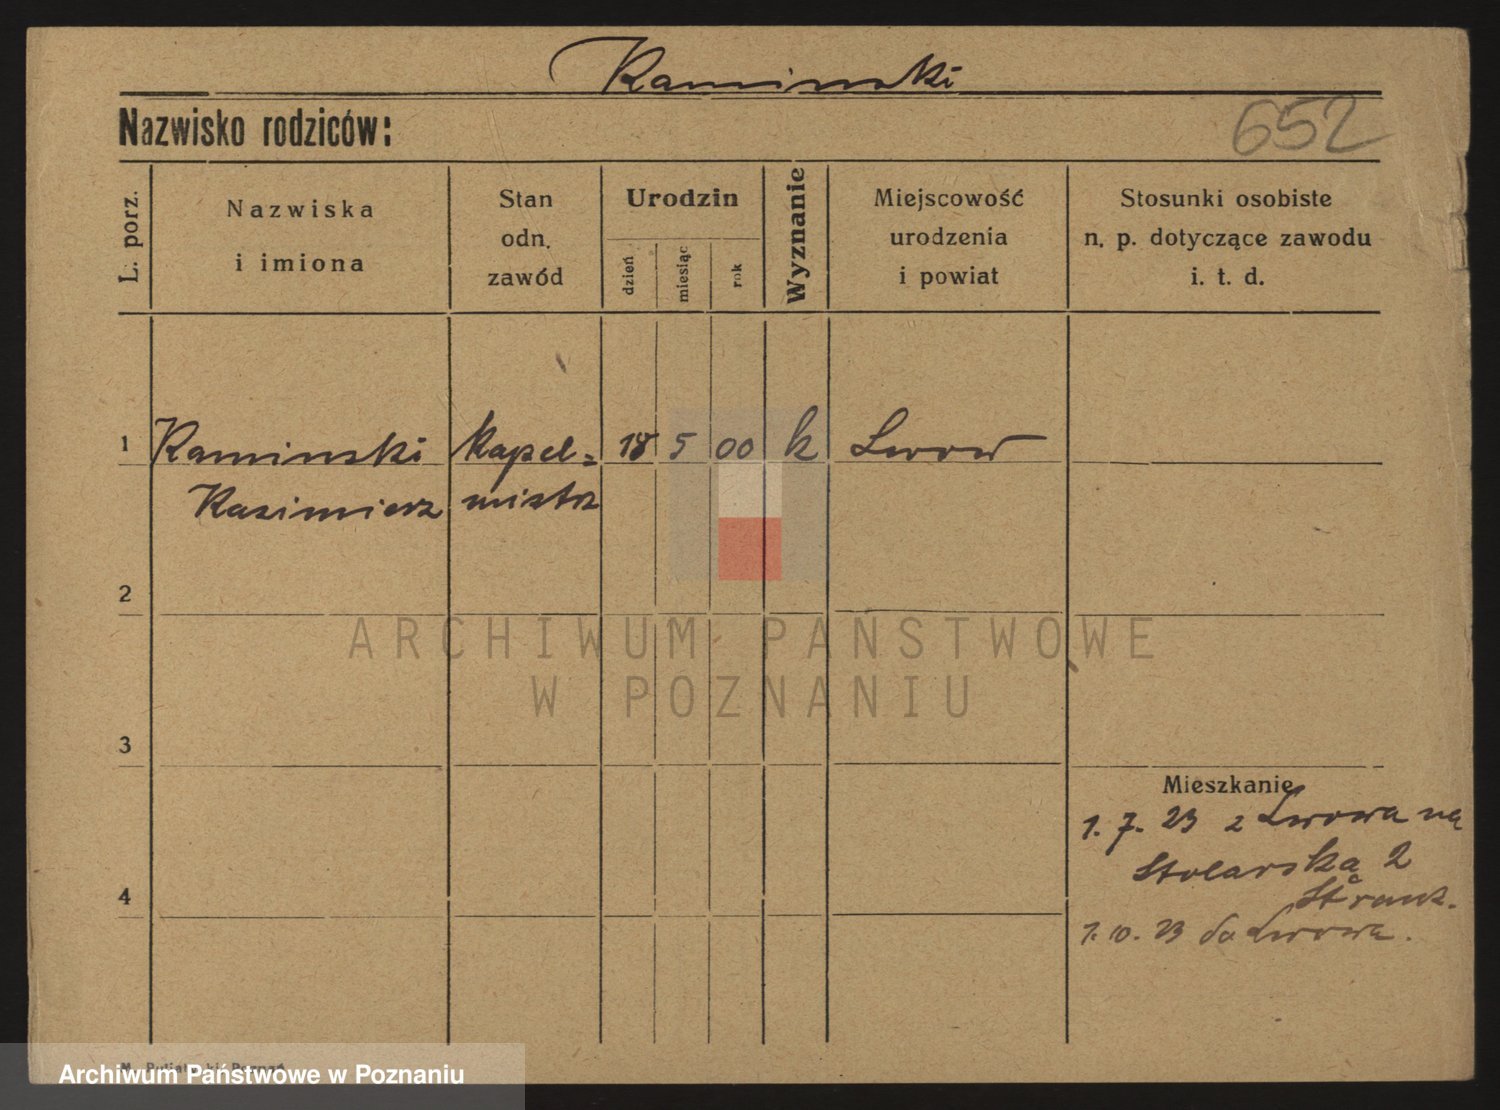 Kaminski
652
Nazwisko rodziców:
L. porz.
Nazwiska
i imiona
Stan
odn.
zawód
Urodzin
dzień
miesiąc
rok
Wyznanie
Miejscowość
urodzenia
i powiat
Stosunki osobiste
n. p. dotyczące zawodu
i. t. d.
1 Kaminski kapel= 18 5 00 k Lwow
Kasimierz mistrz
2
ARCHIWUM PANSTWOWE
W POZNANIU
3
Mieszkanie
1. 7. 23 z Lwowa na
Stolarska 2
4
1. 10. 23 do Lwowa.
Archiwum Państwowe w Poznaniu